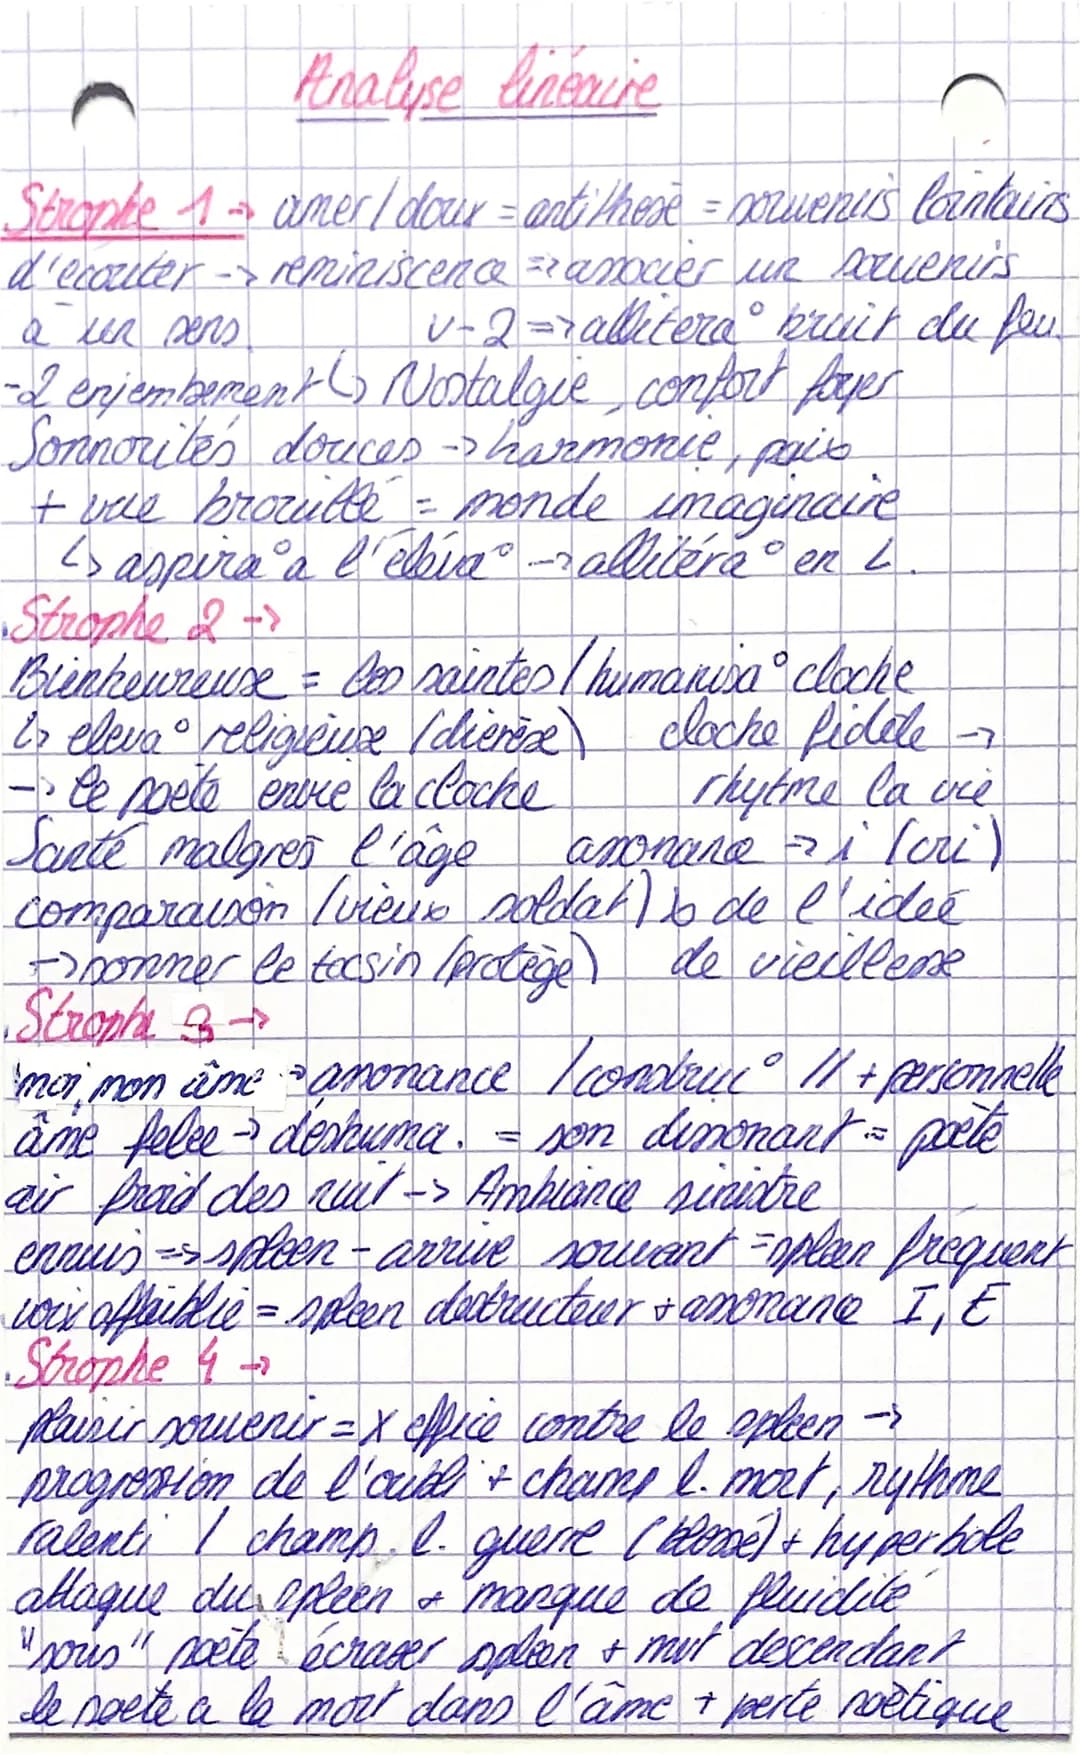 Analyse linéaire
Strophe 1 -> amer / doux = antithèse = souvenirs lointains
d'ecouter -> réminiscence => associer un souvenirs
à un sens. v-2 => allitéra° bruit du feu
-2 enjembement ↳ Nostalgie, confort foyer
Sonnorités douces -> harmonie, paix
+ vue brouillé = monde imaginaire
↳ aspira° a l'éléva° -> allitéra° en L.
Strophe 2 ->
Bienheureuse = les saintes / humanisa° cloche
↳ eleva° religieuse (dierèse) cloche fidèle ->
-> le poète envie la cloche rhytme la vie
Santé malgres l'âge assonance -> i (cri)
comparaison (vieux soldat) ↳ de l'idée
-> sonner le tocsin (protège) de vieillesse
Strophe 3 ->
moi, mon âme -> assonance / construc° // + personnelle
âme felee -> déshuma. = son dissonant = poète
air froid des nuit -> Ambiance sinistre
ennuis => spleen - arrive souvent = spleen fréquent
voix affaiblie = spleen destructeur + assonance I, E
Strophe 4 ->
plaisir souvenir = X effice contre le spleen ->
progression de l'oubli + champ l. mort, rythme
ralenti / champ. l. guerre (blessé) + hyperbole
attaque du spleen + manque de fluidité
"sous" poète écraser spleen + mvt descendant
le poete a la mort dans l'âme + perte poètique